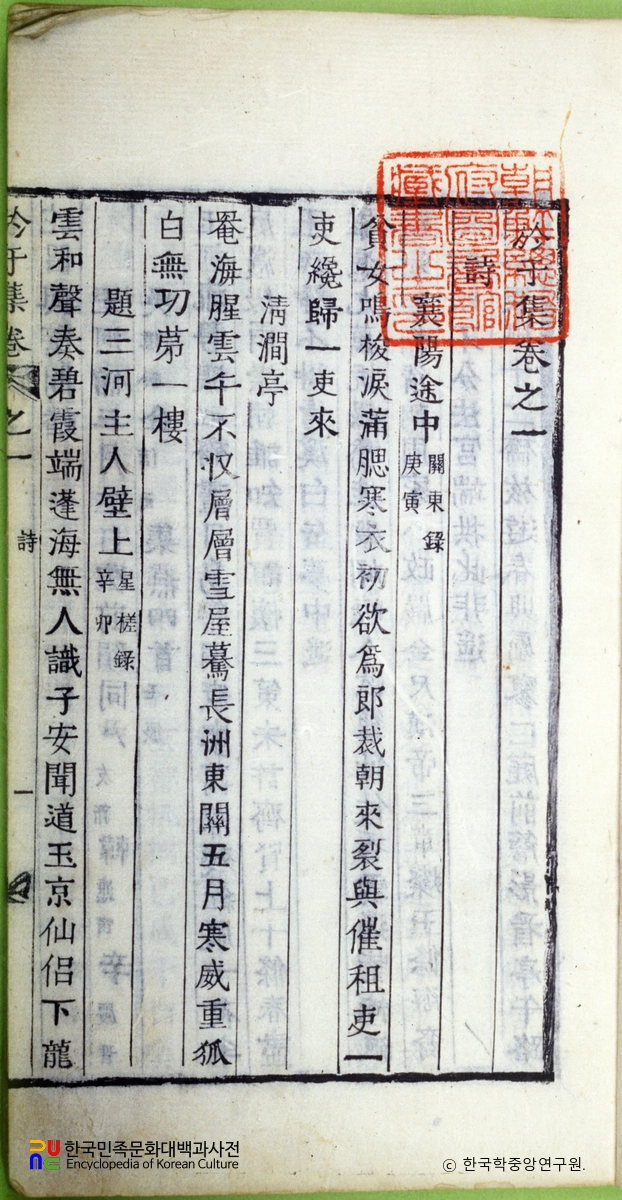 朝鮮總督府圖書館藏書之印
於于集卷之一
詩
襄陽途中 關東錄 庚寅
貧女鳴梭淚滿腮寒衣初欲爲郎裁朝來裂與催租吏一
吏纔歸一吏來
淸澗亭
罨海腥雲午不收層層雪屋驀長洲東關五月寒威重狐
白無功苐一樓
題三河主人壁上 星槎錄 辛卯
雲和聲奏碧霞端蓬海無人識子安聞道玉京仙侶下龍
於于集卷之一 詩 一
한국민족문화대백과사전
Encyclopedia of Korean Culture
ⓒ 한국학중앙연구원.